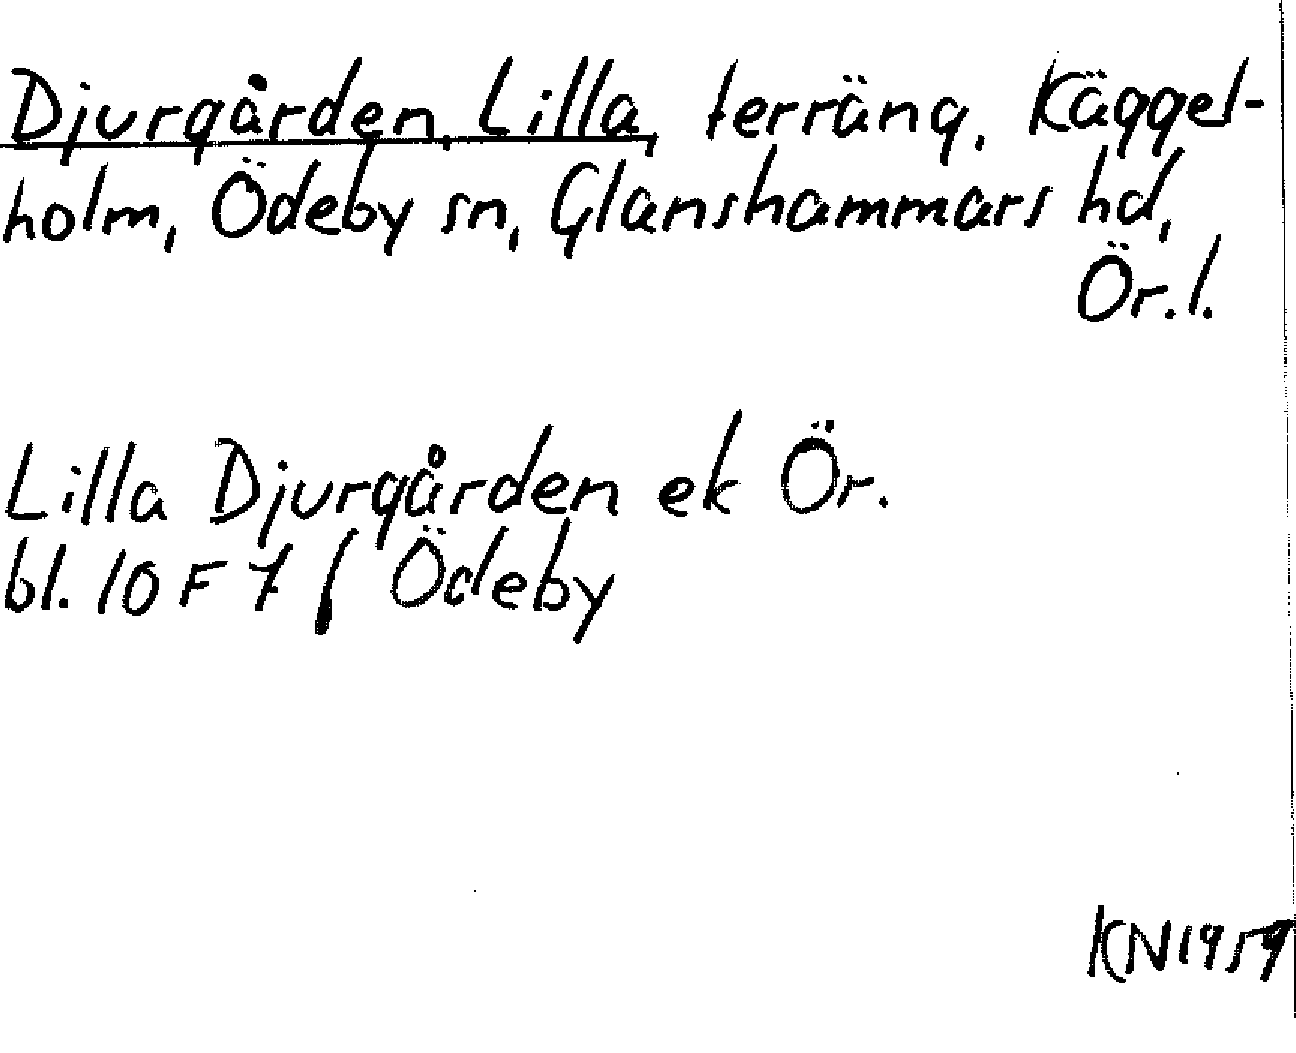 Djurgården, Lilla, terräng, Käggel-
holm, Ödeby sn, Glanshammars hd,
Ör.l.
Lilla Djurgården ek Ör.
bl. 10 F 7 f Ödeby
KN 1959